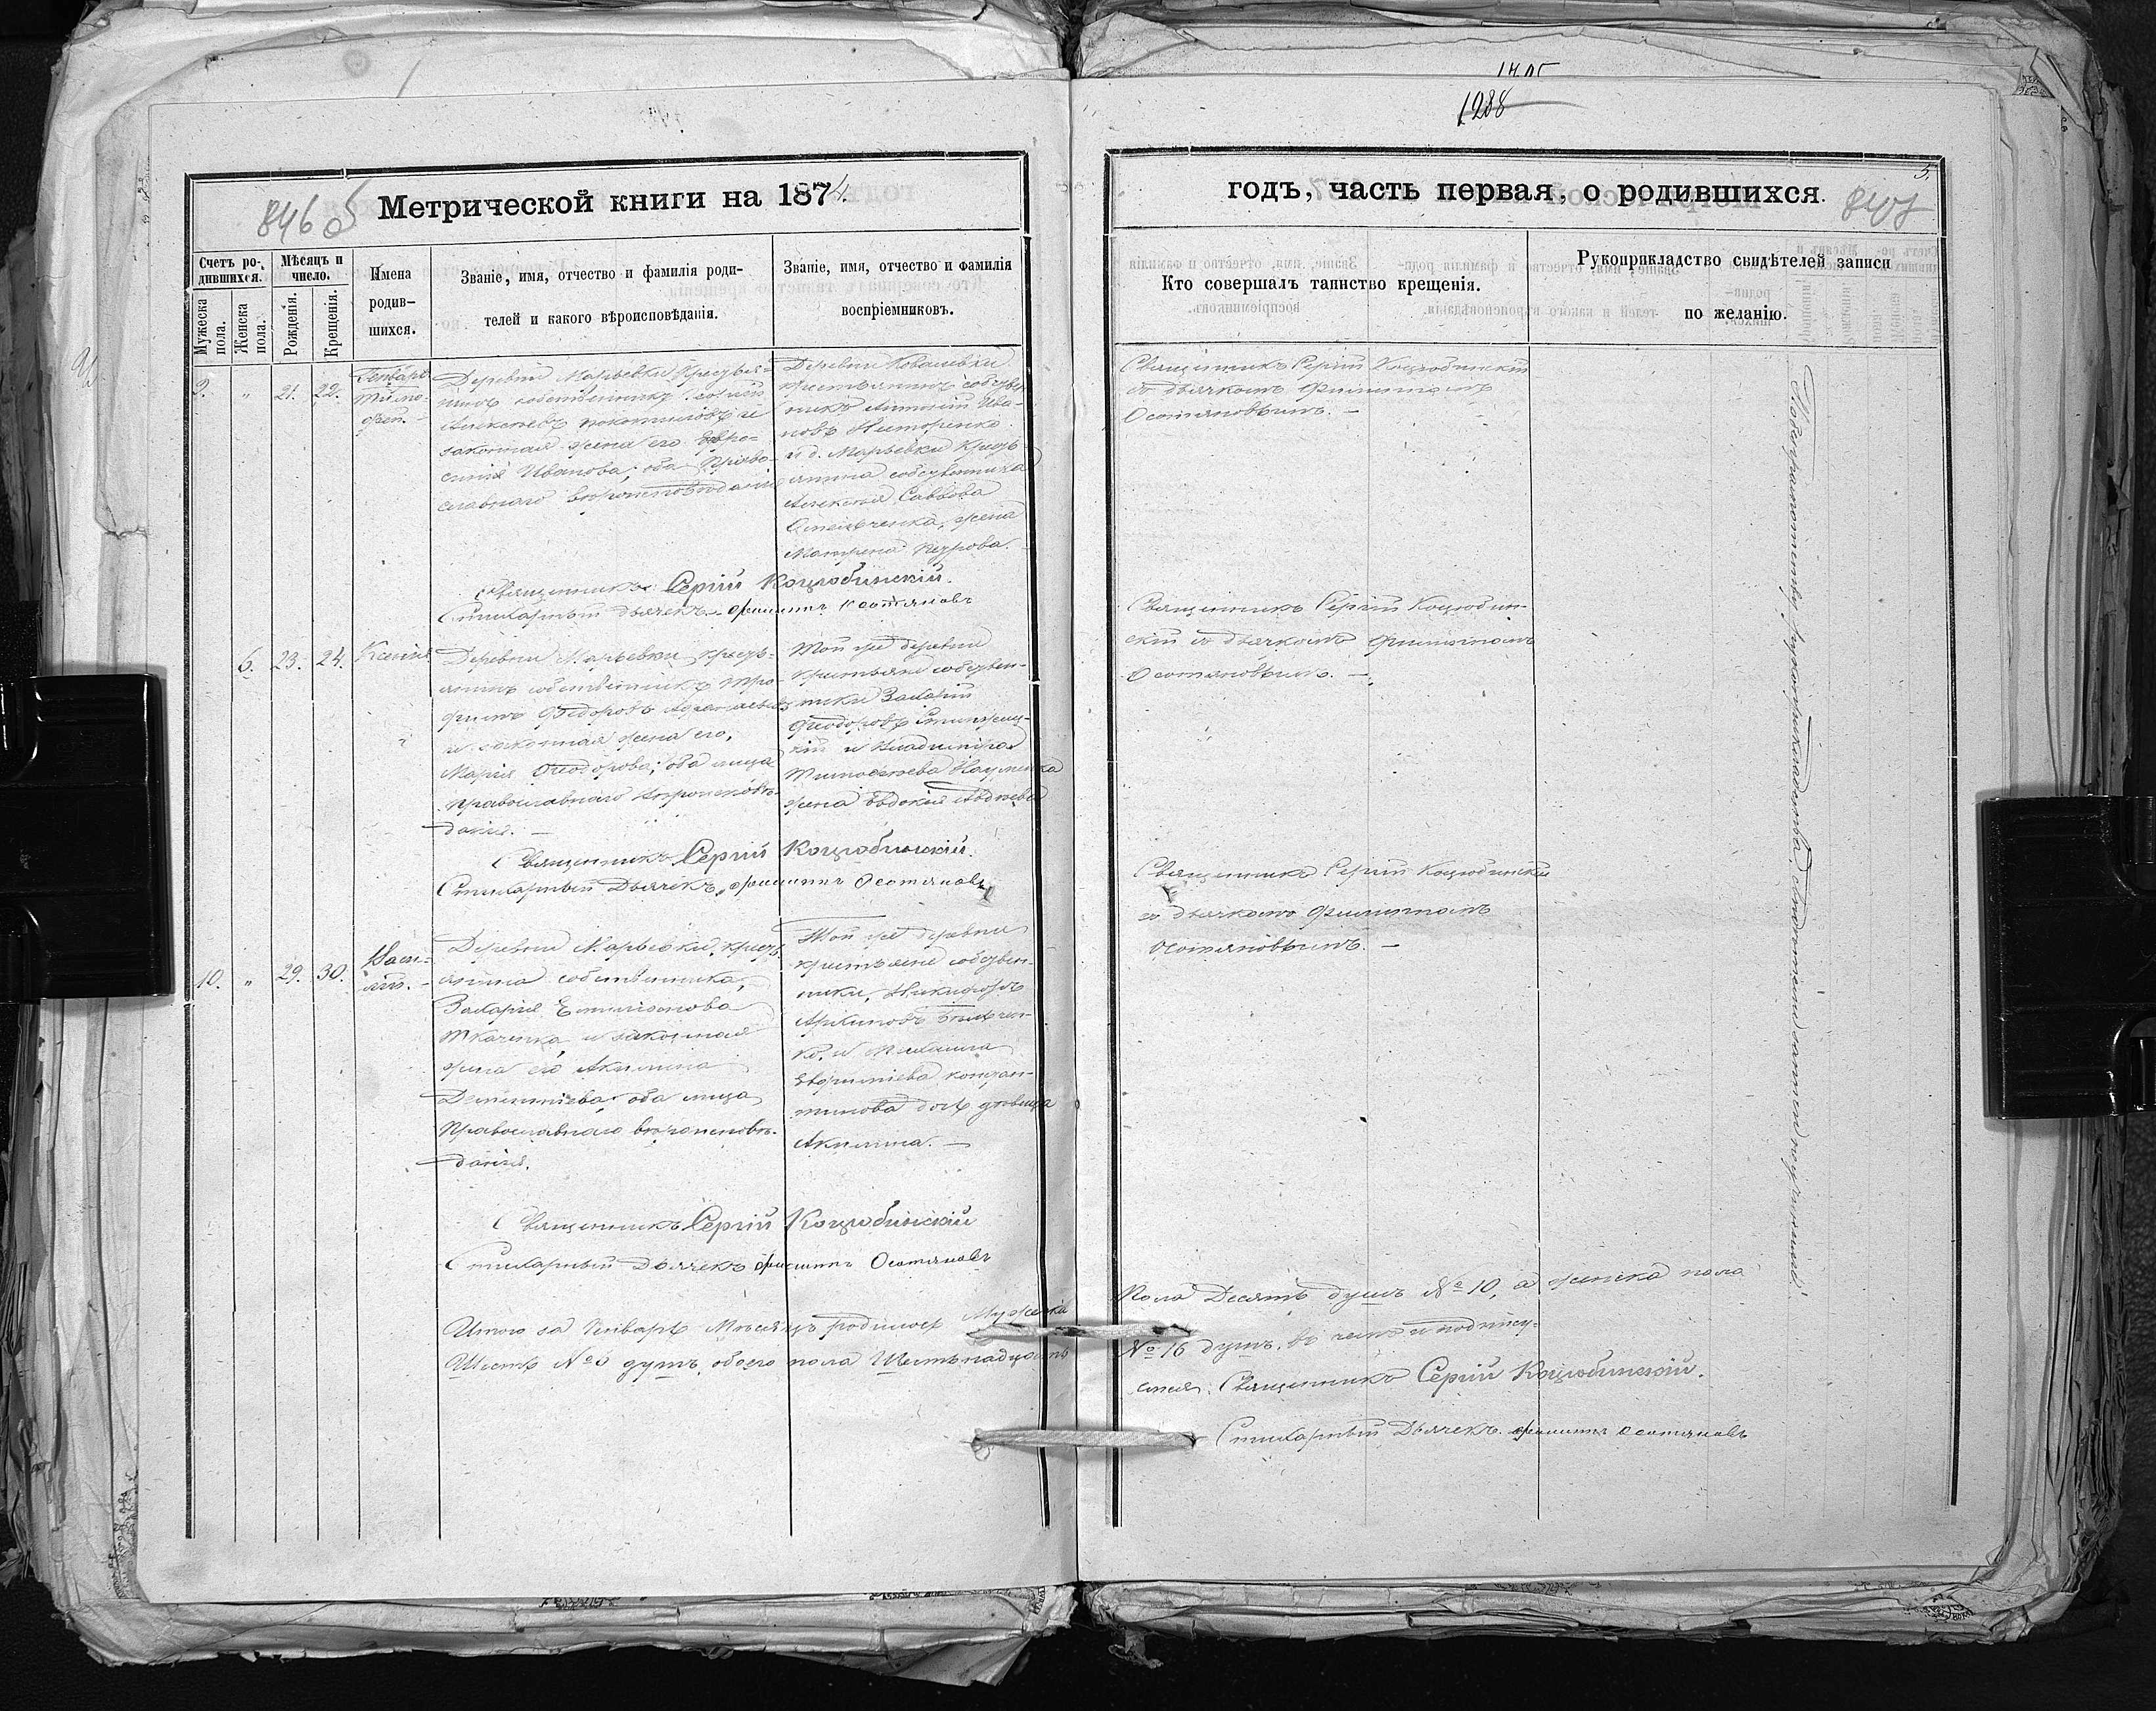 1288
846
Метрической книги на 1874.
Счетъ ро-
дившихся.
Мѣсяцъ и
число.
Мужеска
пола.
Женска
пола.
Рожденія.
Крещенія.
Имена
родив-
шихся.
Званіе, имя, отчество и фамилія роди-
телей и какого вѣроисповѣданія.
Званіе, имя, отчество и фамилія
воспріемниковъ.
9. „ 21. 22.
Генваръ
Тимо-
фей.
Деревни Марьевки Крестья-
нинъ собственникъ
Алексѣевъ и
законная жена его Евро-
синія Иванова; оба Право-
славнаго вѣроисповѣданія
Деревни Ковалевки
крестьянинъ собствен
никъ Антоній Ива-
новъ Нестеренко
и д. Марьевки Крестъ
янина собственника
Алексѣя Саввова
Омельченка, жена
Матрена Петрова.
Священникъ Сергій Коцюбинскій.
Стихарный Дьячекъ Филиппъ Осотяновъ
6. 23. 24.
Ксенія
Деревни Марьевки кресть-
янинъ собственникъ Тро-
фимъ Ѳедоровъ
и законная жена его,
Марія Ѳеодорова; оба лица
православнаго вѣроисповѣ-
данія.
Той же деревни
Крестьяне собствен-
ники Захарій
Ѳеодоровъ
и Владиміра
Тимоѳеева Науменка
жена Евдокія Авдѣева
Священникъ Сергій Коцюбинскій.
Стихарный Дьячекъ Филиппъ Осотяновъ
10. „ 29. 30.
Васи-
лій.
Деревни Марьевки, кресть
янина собственника,
Захарія Емиліанова
Ткаченка и законная
жена его Акилина
Дементіева; оба лица
Православнаго вѣроисповѣ-
данія.
Той же деревни
крестьяне собствен-
ники, Никифоръ
Архиповъ
ко, и Михаила
Евфиміева Констан-
тинова дочь дѣвица
Акилина.
Священникъ Сергій Коцюбинскій
Стихарный Дьячекъ Филиппъ Осотяновъ
Итого за Генварь Мѣсяцъ родилось Мужеска
Шесть № 6 душъ обоего пола Шестьнадцать
годъ, часть первая, о родившихся.
5.
847
Кто совершалъ таинство крещенія.
Рукоприкладство свидѣтелей записи
по желанію.
Священникъ Сергій Коцюбинскій
съ дьячкомъ Филиппомъ
Осотяновымъ.
Священникъ Сергій Коцюбин-
скій съ дьячкомъ Филиппомъ
Осотяновымъ.
Священникъ Сергій Коцюбинскій
съ дьячкомъ Филиппомъ
Осотяновымъ.
пола Десять душъ № 10, а женска пола
№ 16 душъ, въ чемъ и подпису-
емся: Священникъ Сергій Коцюбинскій.
Стихарный Дьячекъ Филиппъ Осотяновъ